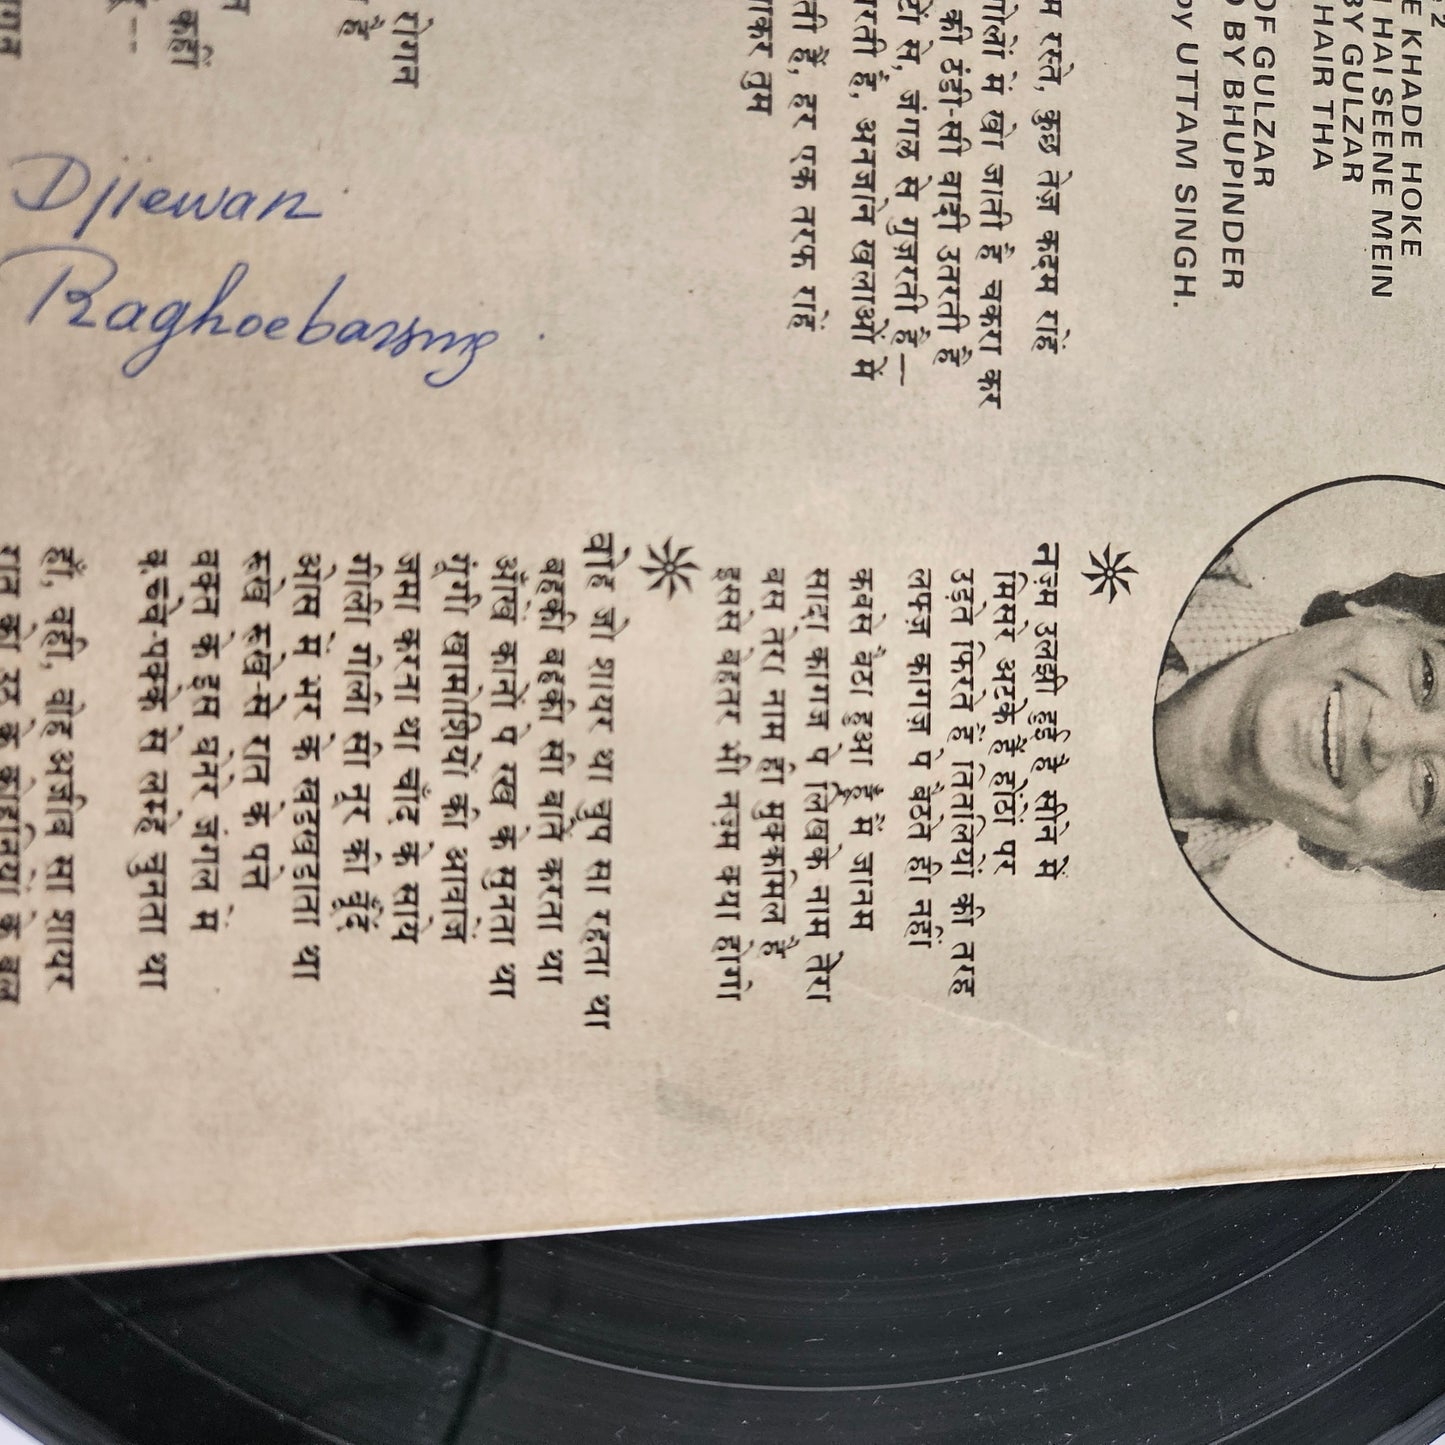 2
E KHADE HOKE
HAI SEENE MEIN
BY GULZAR
HAIR THA
OF GULZAR
BY BHUPINDER
by UTTAM SINGH.
म रस्ते, कुछ तेज़ क़दम राहें
गोलों में खो जाती है चकरा कर
की ठंडी-सी वादी उतरती है
टों से, जंगल से गुज़रती है—
रती है, अनजाने ख़लाओं में
ती हैं, हर एक तरफ़ राहें
ाकर तुम
रोगन
है
कहीं
Djiewan
Raghoebarsing
नज़्म उलझी हुई है सीने में
मिसरे अटके हैं होठों पर
उड़ते फिरते हैं तितलियों की तरह
लफ़्ज़ काग़ज़ पे बैठते ही नहीं
कबसे बैठा हुआ हूँ मैं जानम
सादा काग़ज़ पे लिखके नाम तेरा
बस तेरा नाम ही मुकम्मिल है
इससे बेहतर भी नज़्म क्या होगी
वोह जो शायर था चुप सा रहता था
बहकी बहकी सी बातें करता था
आँखें कानों पे रख के सुनता था
गूंगी ख़ामोशियों की आवाज़ें
जमा करता था चाँद के साये
गीली गीली सी नूर की बूँदें
ओस में भर के खड़खड़ाता था
रूखे रूखे-से रात के पत्ते
वक़्त के इस घनेरे जंगल में
कच्चे-पक्के से लम्हे चुनता था
हाँ, वही, वोह अजीब सा शायर
रात को उठ के कोहनियों के बल